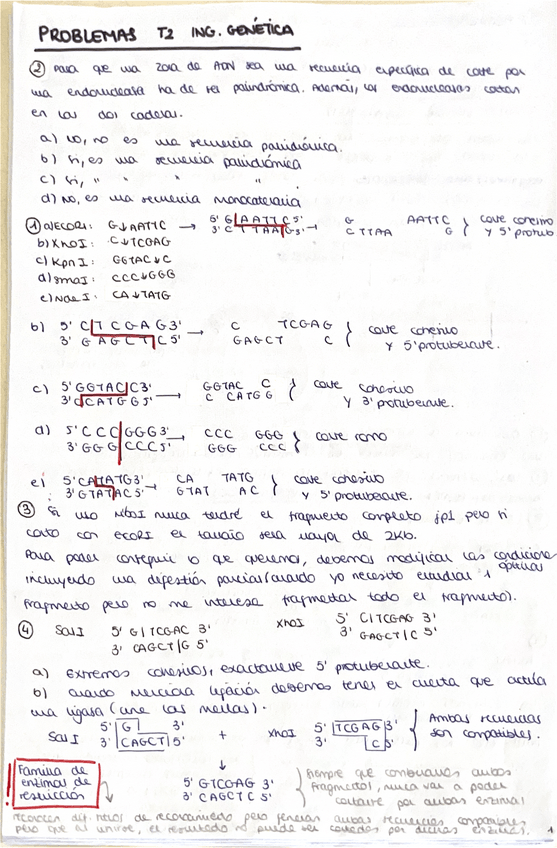 PROBLEMAS T2 ING. GENÉTICA
② Para que una zona de ADN sea una secuencia específica de corte por
una endonucleasa ha de ser palindrómica. Además, las endonucleasas cortan
en las dos cadenas.
a) No, no es una secuencia palindrómica.
b) Si, es una secuencia palindrómica
c) Si, " " " .
d) No, es una secuencia monocatenaria
① a) ECORI: G↓AATTC → 5' G AATTC 5' → G AATTC } corte cohesivo
3' C TTAA G 3' CTTAA G y 5' protub.
b) XhoI: C↓TCGAG
c) KpnI: GGTAC↓C
d) SmaI: CCC↓GGG
e) NdeI: CA↓TATG
b) 5' C TCGAG 3' → C TCGAG } corte cohesivo
3' GAGCT C 5' GAGCT C y 5' protuberante.
c) 5' GGTAC C 3' → GGTAC C } corte cohesivo
3' C CATGG 5' C CATGG y 3' protuberante.
d) 5' CCC GGG 3' → CCC GGG } corte romo
3' GGG CCC 5' GGG CCC
e) 5' CATATG 3' → CA TATG } corte cohesivo
3' GTATAC 5' GTAT AC y 5' protuberante.
③ Si uso NcoI nunca tendré el fragmento completo jp1 pero si
corto con ECORI el tamaño será mayor de 2Kb.
Para poder conseguir lo que queremos, debemos modificar las condiciones optimas
incluyendo una digestión parcial (cuando yo necesito estudiar 1
fragmento pero no me interesa fragmentar todo el fragmento).
④ SalI 5' G|TCGAC 3' XhoI 5' C|TCGAG 3'
3' CAGCT|G 5' 3' GAGCT|C 5'
a) Extremos cohesivos, exactamente 5' protuberante.
b) Cuando menciona ligación debemos tener en cuenta que actúa
una ligasa (une las mellas).
SalI 5' G 3' + XhoI 5' TCGAG 3' } Ambas secuencias
3' CAGCT 5' 3' C 5' son compatibles.
↓
! Familia de
enzimas de
restricción
5' GTCGAG 3'
3' CAGCTC 5'
} Siempre que combinamos ambos
fragmentos, nunca va a poder
cortarse por ambas enzimas
reconocen dif. sitios de reconocimiento pero generan ambas secuencias compatibles
pero que al unirse, el resultado no puede ser cortado por dichas enzimas. 1